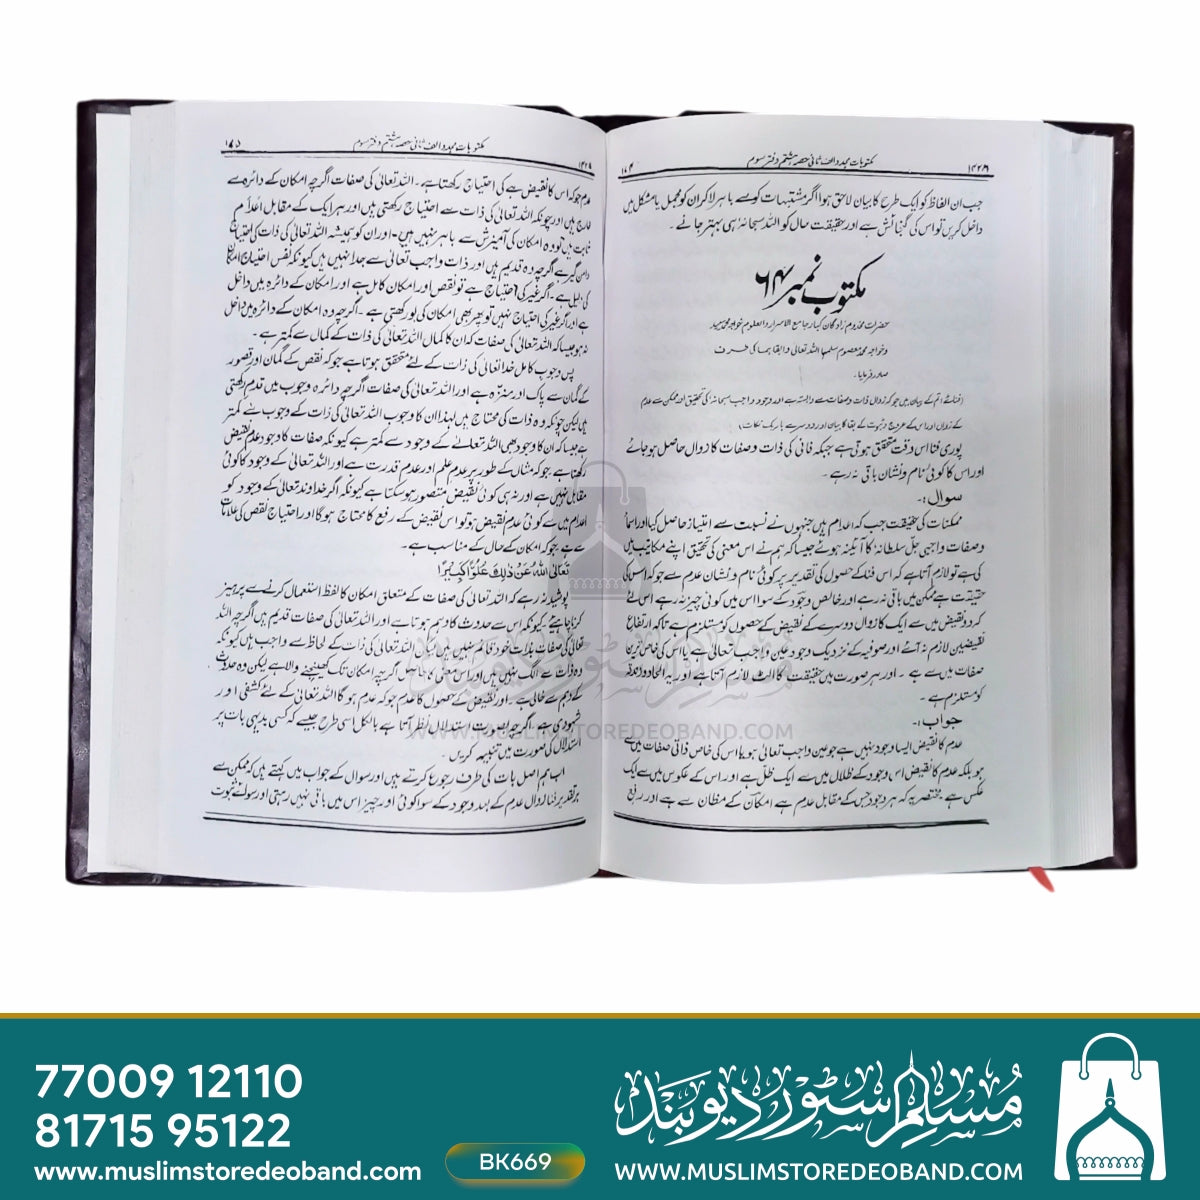 ۱۴۲۶ مکتوبات مجدد الف ثانی حصہ ہشتم دفتر سوم ۱۷۴
جب ان الفاظ کو ایک طرح کا بیان لاحق ہوا اگر مشتبہات کوسے باہر لاکر ان کو مجمل یا مشکل میں
داخل کریں تو اس کی گنجائش ہے اور حقیقت حال کو اللہ سبحانہٗ ہی بہتر جانے۔
مکتوب نمبر ۶۴
حضرات مخدوم زادگان کبار جامع الاسرار والعلوم خواجہ محمد سعید
و خواجہ محمد معصوم سلمہما اللہ تعالیٰ وابقاہما کی طرف
صادر فرمایا۔
(فنائے اتم کے بیان میں جو کہ زوال ذات و صفات سے وابستہ ہے اور وجود واجب سبحانہٗ کی تحقیق اور ممکن سے عدم
کے زوال اور اس کے عروج و ثبوت کے بقا کا بیان اور دوسرے باریک نکات)
پوری فنا اس وقت متحقق ہوتی ہے جبکہ فانی کی ذات و صفات کا زوال حاصل ہو جائے
اور اس کا کوئی نام و نشان باقی نہ رہے۔
سوال:۔
ممکنات کی حقیقت جب کہ اعدام ہیں جنہوں نے نسبت سے امتیاز حاصل کیا اور اسما
و صفات واجبی جل سلطانہٗ کا آئینہ ہوئے جیسا کہ ہم نے اس معنی کی تحقیق اپنے مکاتیب میں
کی ہے تو لازم آتا ہے کہ اس فنا کے حصول کی تقدیر پر کوئی نام و نشان عدم سے جو کہ اس کی
حقیقت ہے ممکن میں باقی نہ رہے اور خالص وجود کے سوا اس میں کوئی چیز نہ رہے اس لئے
کہ دو نقیض میں سے ایک کا زوال دوسرے کے نقیض کے حصول کو مستلزم ہے تاکہ ارتفاع
نقیضین لازم نہ آئے اور صوفیہ کے نزدیک وجود عین واجب تعالیٰ ہے یا اس کی خاص ترین
صفات میں سے ہے۔ اور ہر صورت میں حقیقت کا الٹ لازم آتا ہے اور یہ الحاد و زندقہ
کو مستلزم ہے۔
جواب:۔
عدم کا نقیض ایسا وجود نہیں ہے جو عین واجب تعالیٰ ہو یا اس کی خاص ذاتی صفات میں سے
ہو بلکہ عدم کا نقیض اس وجود کے ظلال میں سے ایک ظل ہے اور اس کے عکوس میں سے ایک
عکس ہے۔ مختصر یہ کہ ہر وجود جس کے مقابل عدم ہے امکان کے مظان سے ہے اور رفع
۱۴۲۹ مکتوبات مجدد الف ثانی حصہ ہشتم دفتر سوم ۱۷۵
عدم جو کہ اس کا نقیض ہے کی احتیاج رکھتا ہے۔ اللہ تعالیٰ کی صفات اگرچہ امکان کے دائرہ سے
خارج ہیں اور چونکہ اللہ تعالیٰ کی ذات سے احتیاج رکھتی ہیں اور ہر ایک کے مقابل اعدام
ثابت ہیں تو وہ امکان کی آمیزش سے باہر نہیں ہیں۔ اور ان کو ہمیشہ اللہ تعالیٰ کی ذات کی احتیاج
دامن گیر ہے اگرچہ وہ قدیم ہیں اور ذات واجب تعالیٰ سے جدا نہیں ہیں کیونکہ نفس احتیاج امکان
کی دلیل ہے۔ اگر غیر کی احتیاج ہے تو نقص اور امکان کامل ہے اور امکان کے دائرہ میں داخل
ہے اور اگر غیر کی احتیاج نہیں تو پھر بھی امکان کی بو رکھتی ہے۔ اگرچہ وہ امکان کے دائرہ میں داخل
نہ ہو جیسا کہ اللہ تعالیٰ کی صفات کہ ان کا کمال اللہ تعالیٰ کی ذات کے کمال سے کمتر ہے۔
پس وجوب کامل خدا تعالیٰ کی ذات کے لئے متحقق ہوتا ہے جو کہ نقص کے گمان اور قصور
کے گمان سے پاک اور منزہ ہے اور اللہ تعالیٰ کی صفات اگرچہ دائرہ وجوب میں قدم رکھتی
ہیں لیکن چونکہ وہ ذات کی محتاج ہیں لہٰذا ان کا وجوب اللہ تعالیٰ کی ذات کے وجوب سے کمتر
ہے جیسا کہ ان کا وجود بھی اللہ تعالیٰ کے وجود سے کمتر ہے کیونکہ صفات کا وجود عدم نقیض
رکھتا ہے جو کہ مثال کے طور پر عدم علم اور عدم قدرت سے اور اللہ تعالیٰ کے وجود کا کوئی
مقابل نہیں ہے اور نہ ہی کوئی نقیض متصور ہو سکتا ہے کیونکہ اگر خداوند تعالیٰ کے وجود کو
اعدام میں سے کوئی عدم نقیض ہو تو اس نقیض کے رفع کا محتاج ہوگا اور احتیاج نقص کی علامات
سے ہے جو کہ امکان کے حال کے مناسب ہے۔
تَعَالَى اللّٰهُ عَنْ ذٰلِكَ عُلُوًّا كَبِيْرًا
پوشیدہ نہ رہے کہ اللہ تعالیٰ کی صفات کے متعلق امکان کا لفظ استعمال کرنے سے پرہیز
کرنا چاہئے۔ کیونکہ اس سے حدوث کا وہم ہوتا ہے اور اللہ تعالیٰ کی صفات قدیم ہیں اگرچہ اللہ
تعالیٰ کی صفات بذات خود قائم نہیں ہیں لیکن اللہ تعالیٰ کی ذات کے لحاظ سے واجب ہیں کیونکہ
وہ ذات سے الگ نہیں ہیں اور اس معنی کا حاصل اگرچہ امکان تک کھینچنے والا ہے لیکن وہ حدوث
کے وہم سے خالی ہے۔ اور نقیض کے حصول کا عدم جو کہ عدم ہوگا اللہ تعالیٰ کے لئے کشفی اور
شہودی ہے اگرچہ بصورت استدلال نظر آتا ہے بالکل اسی طرح جیسے کہ کسی بدیہی بات پر
استدلال کی صورت میں تنبیہ کریں۔
اب ہم اصل بات کی طرف رجوع کرتے ہیں اور سوال کے جواب میں کہتے ہیں کہ ممکن سے
بر تقدیر فنا زوال عدم کے بعد وجود کے سوا کوئی اور چیز اس میں باقی نہیں رہتی اور سوائے ثبوت
مسلم سٹور دیوبند
WWW.MUSLIMSTOREDEOBAND.COM
77009 12110
81715 95122
www.muslimstoredeoband.com
BK669
مسلم سٹور دیوبند
WWW.MUSLIMSTOREDEOBAND.COM